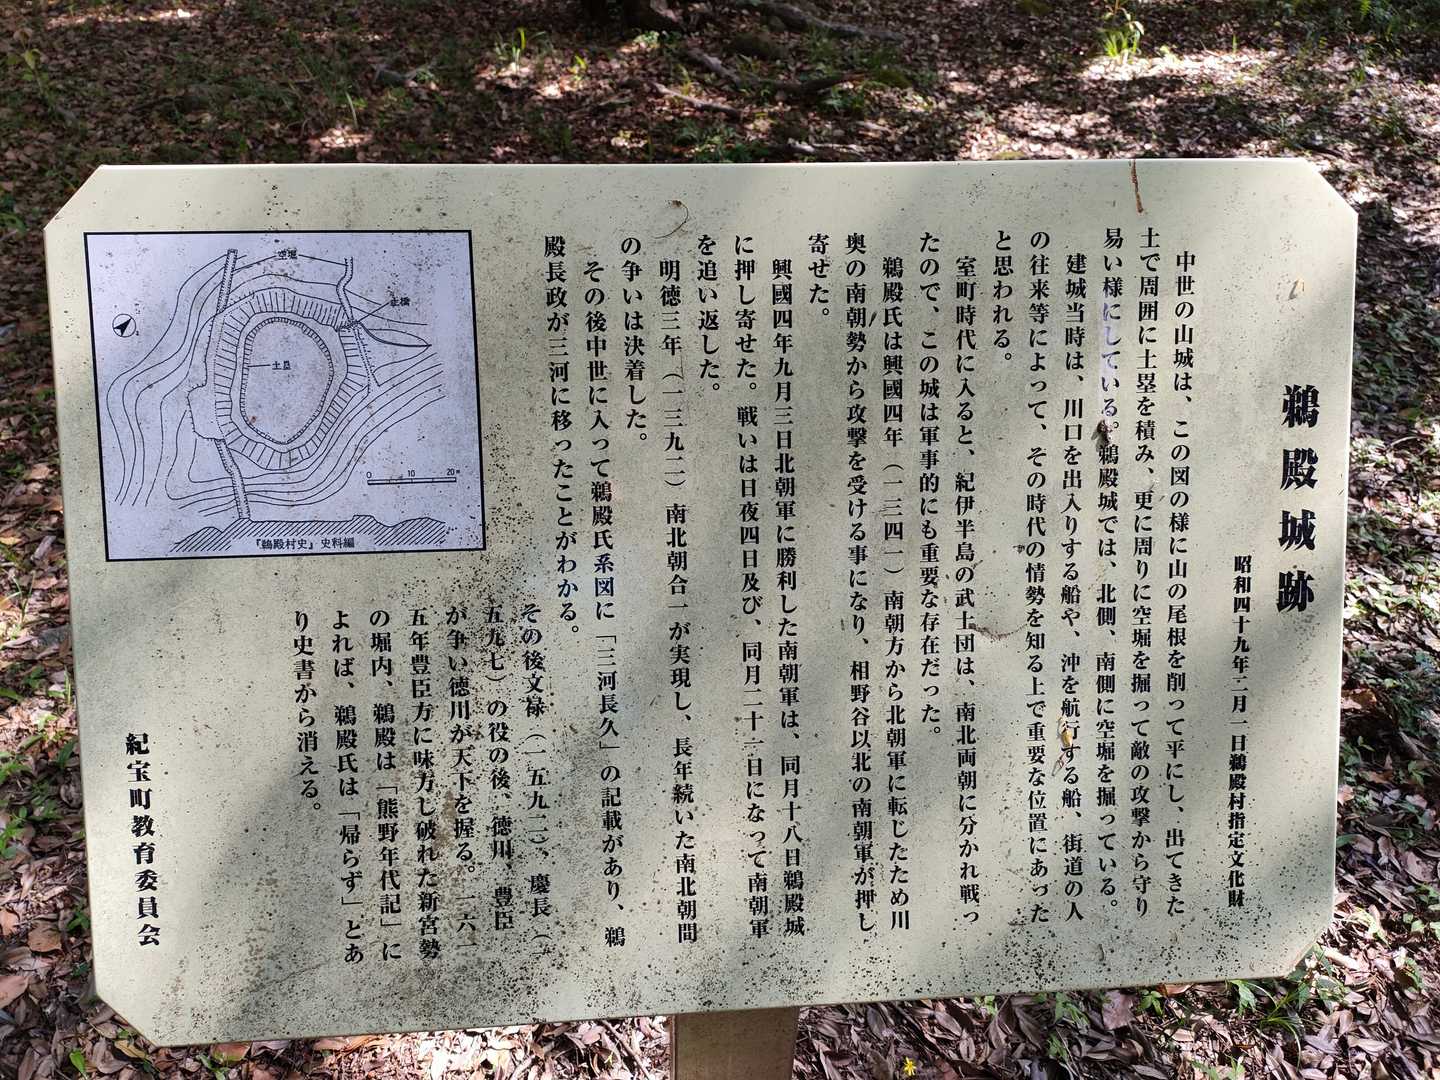 鵜殿城跡
昭和四十九年二月一日鵜殿村指定文化財
中世の山城は、この図の様に山の尾根を削って平にし、出てきた
土で周囲に土塁を積み、更に周りに空堀を掘って敵の攻撃から守り
易い様にしている。鵜殿城では、北側、南側に空堀を掘っている。
建城当時は、川口を出入りする船や、沖を航行する船、街道の人
の往来等によって、その時代の情勢を知る上で重要な位置にあった
と思われる。
室町時代に入ると、紀伊半島の武士団は、南北両朝に分かれ戦っ
たので、この城は軍事的にも重要な存在だった。
鵜殿氏は興國四年（一三四一）南朝方から北朝軍に転じたため川
奥の南朝勢から攻撃を受ける事になり、相野谷以北の南朝軍が押し
寄せた。
興國四年九月三日北朝軍に勝利した南朝軍は、同月十八日鵜殿城
に押し寄せた。戦いは日夜四日及び、同月二十二日になって南朝軍
を追い返した。
明徳三年（一三九二）南北朝合一が実現し、長年続いた南北朝間
の争いは決着した。
その後中世に入って鵜殿氏系図に「三河長久」の記載があり、鵜
殿長政が三河に移ったことがわかる。
その後文禄（一五九二）、慶長（一
五九七）の役の後、徳川、豊臣
が争い徳川が天下を握る。一六一
五年豊臣方に味方し破れた新宮勢
の堀内、鵜殿は「熊野年代記」に
よれば、鵜殿氏は「帰らず」とあ
り史書から消える。
紀宝町教育委員会
空堀
土橋
土塁
0 10 20m
『鵜殿村史』史料編